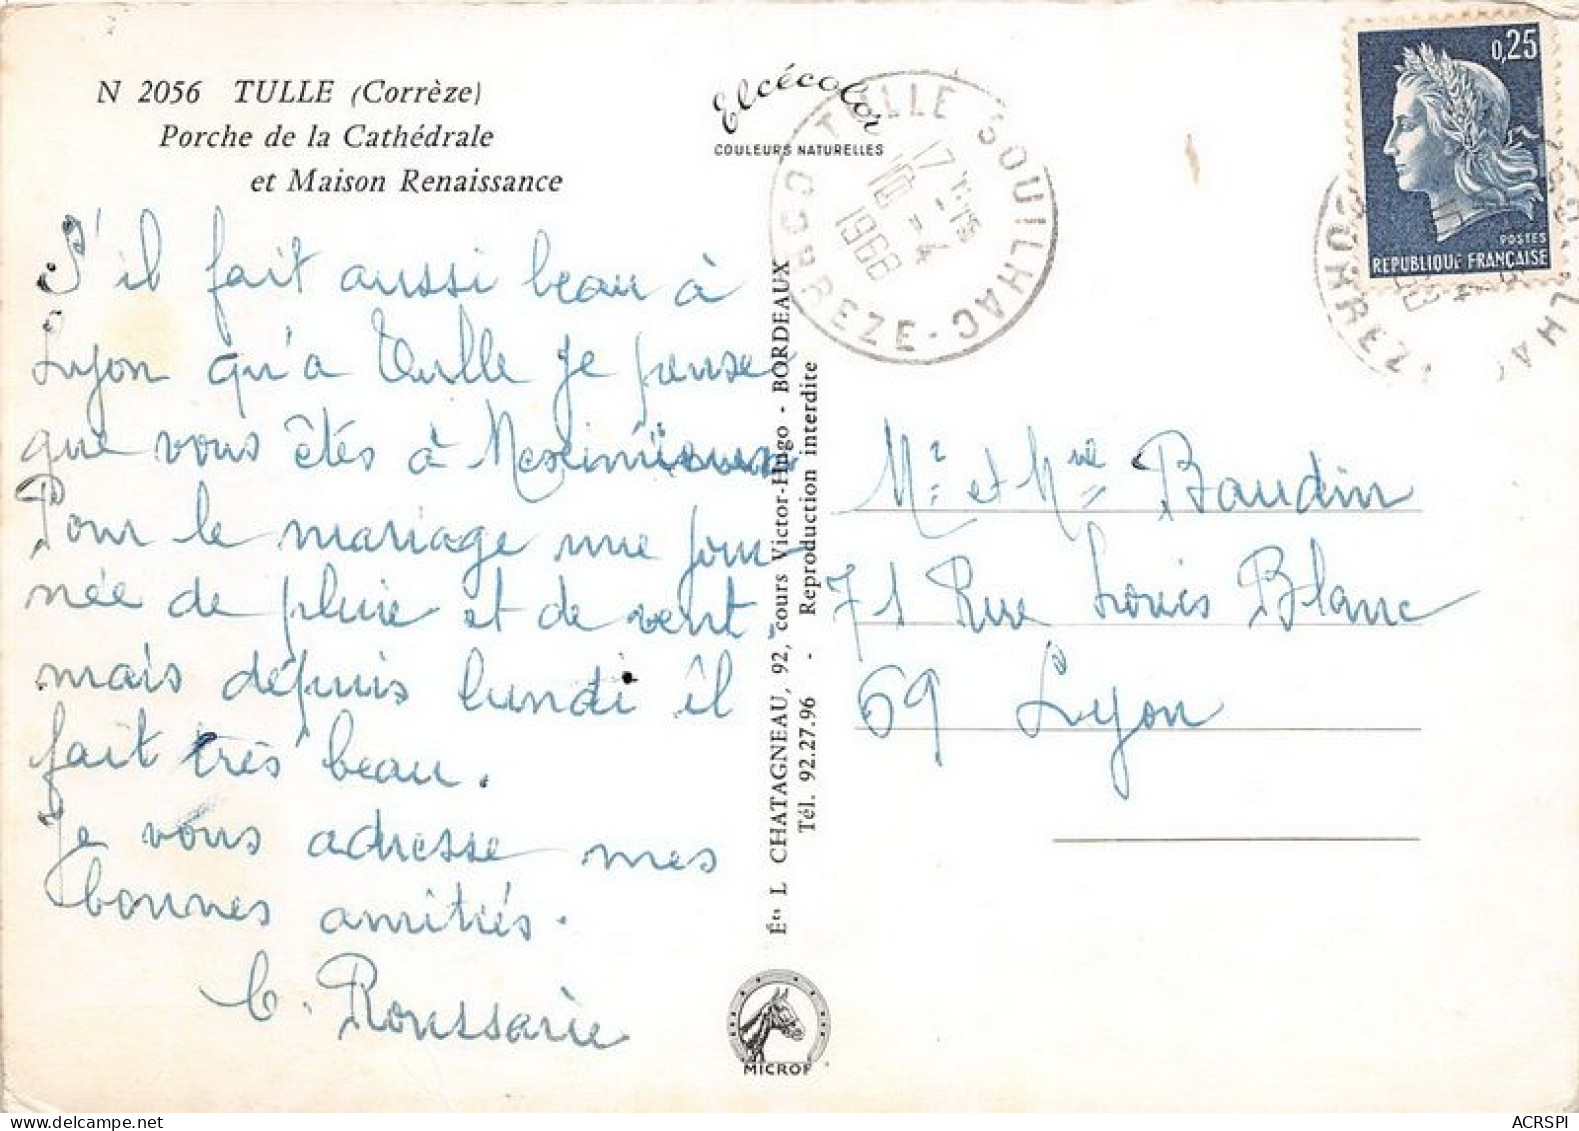 N 2056 TULLE (Corrèze)
Porche de la Cathédrale
et Maison Renaissance
Elcécolor
COULEURS NATURELLES
TULLE SOUILHAC
CORREZE
17 H 15
10 - 4
1968
0,25
POSTES
REPUBLIQUE FRANÇAISE
S'il fait aussi beau à
Lyon qu'a Tulle je pense
que vous êtés à Meximieux
Pour le mariage une jour-
née de pluie et de vent,
mais dépuis lundi îl
fait très beau.
Je vous adresse mes
bonnes amitiés.
C. Roussarie
Éts L CHATAGNEAU, 92, cours Victor-Hugo - BORDEAUX
Tél. 92.27.96 - Reproduction interdite
Mr et Mme Baudin
71 Rue Louis Blanc
69 Lyon
MICROF
ACRSPI